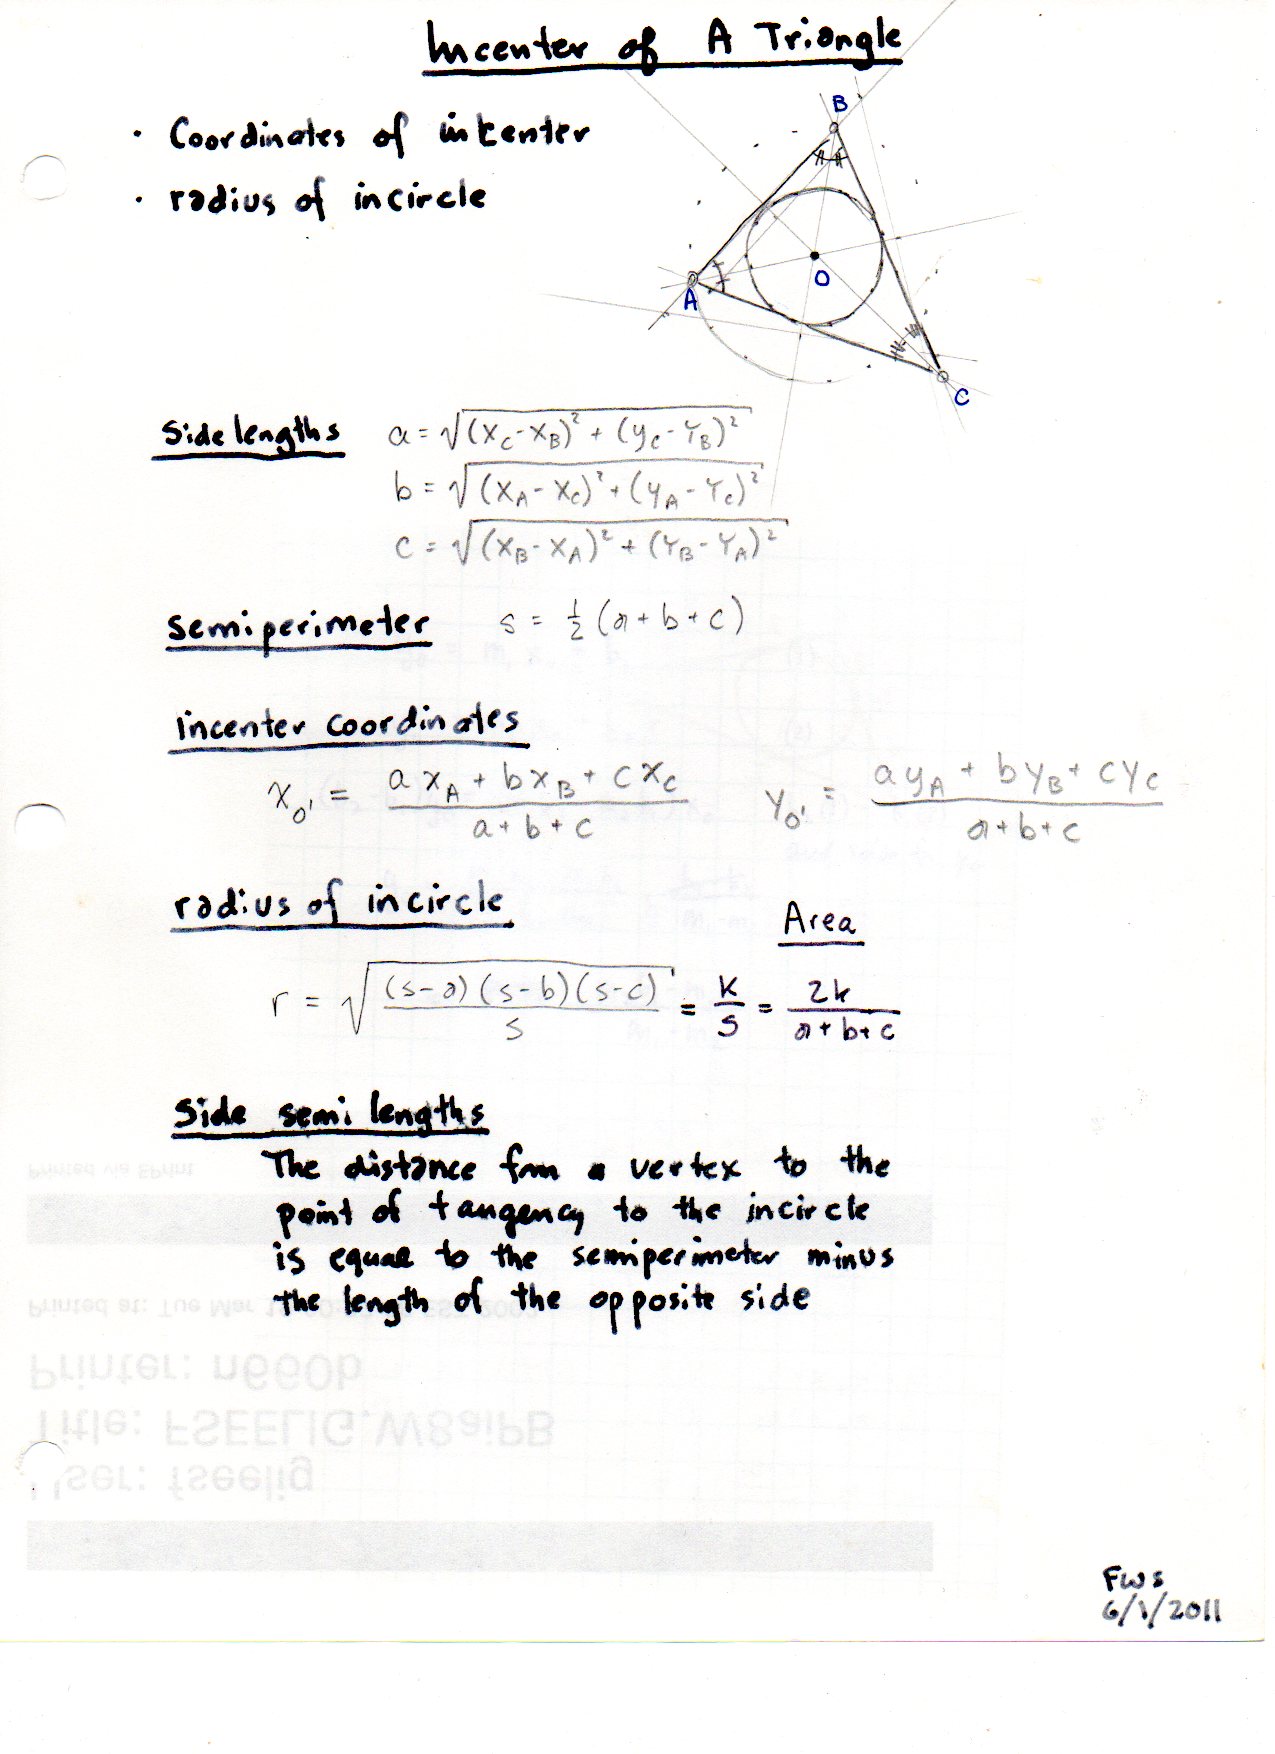 Incenter of A Triangle
· Coordinates of incenter
· radius of incircle
B
A
O
C
Side lengths a = √(x_C - x_B)² + (y_C - Y_B)²
b = √(x_A - x_C)² + (y_A - Y_C)²
c = √(x_B - x_A)² + (Y_B - Y_A)²
Semiperimeter s = ½ (a + b + c)
incenter coordinates
x_O' = (a x_A + b x_B + c x_C) / (a + b + c) Y_O' = (a y_A + b y_B + c y_C) / (a + b + c)
radius of incircle
Area
r = √((s-a)(s-b)(s-c) / s) = K/S = 2k / (a + b + c)
Side semi lengths
The distance from a vertex to the
point of tangency to the incircle
is equal to the semiperimeter minus
the length of the opposite side
Printed via EPrint
Printed at: Tue Mar
Printer: n660b
Title: FSEELIG.W8aiPB
User: fseelig
FWS
6/1/2011